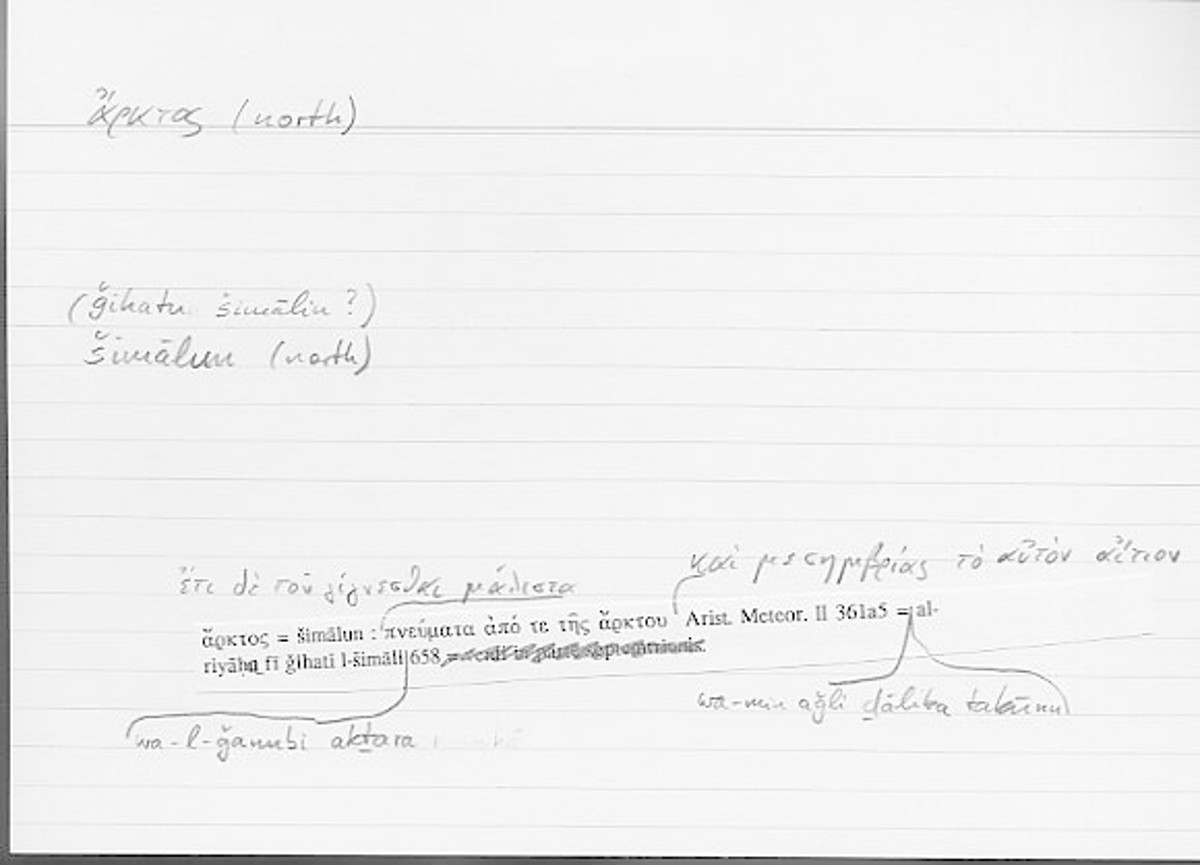 ἄρκτος (north)
(ǧihatu šimālin ?)
šimālun (north)
ἔτι δὲ τοῦ γίγνεσθαι μάλιστα
καὶ μεσημβρίας τὸ αὐτὸν αἴτιον
ἄρκτος = šimālun : πνεύματα ἀπό τε τῆς ἄρκτου Arist. Meteor. II 361a5 = al-
riyāḥu fī ǧihati l-šimāli 658
wa-min aǧli ḏālika takūnu
wa-l-ǧanubi akṯara